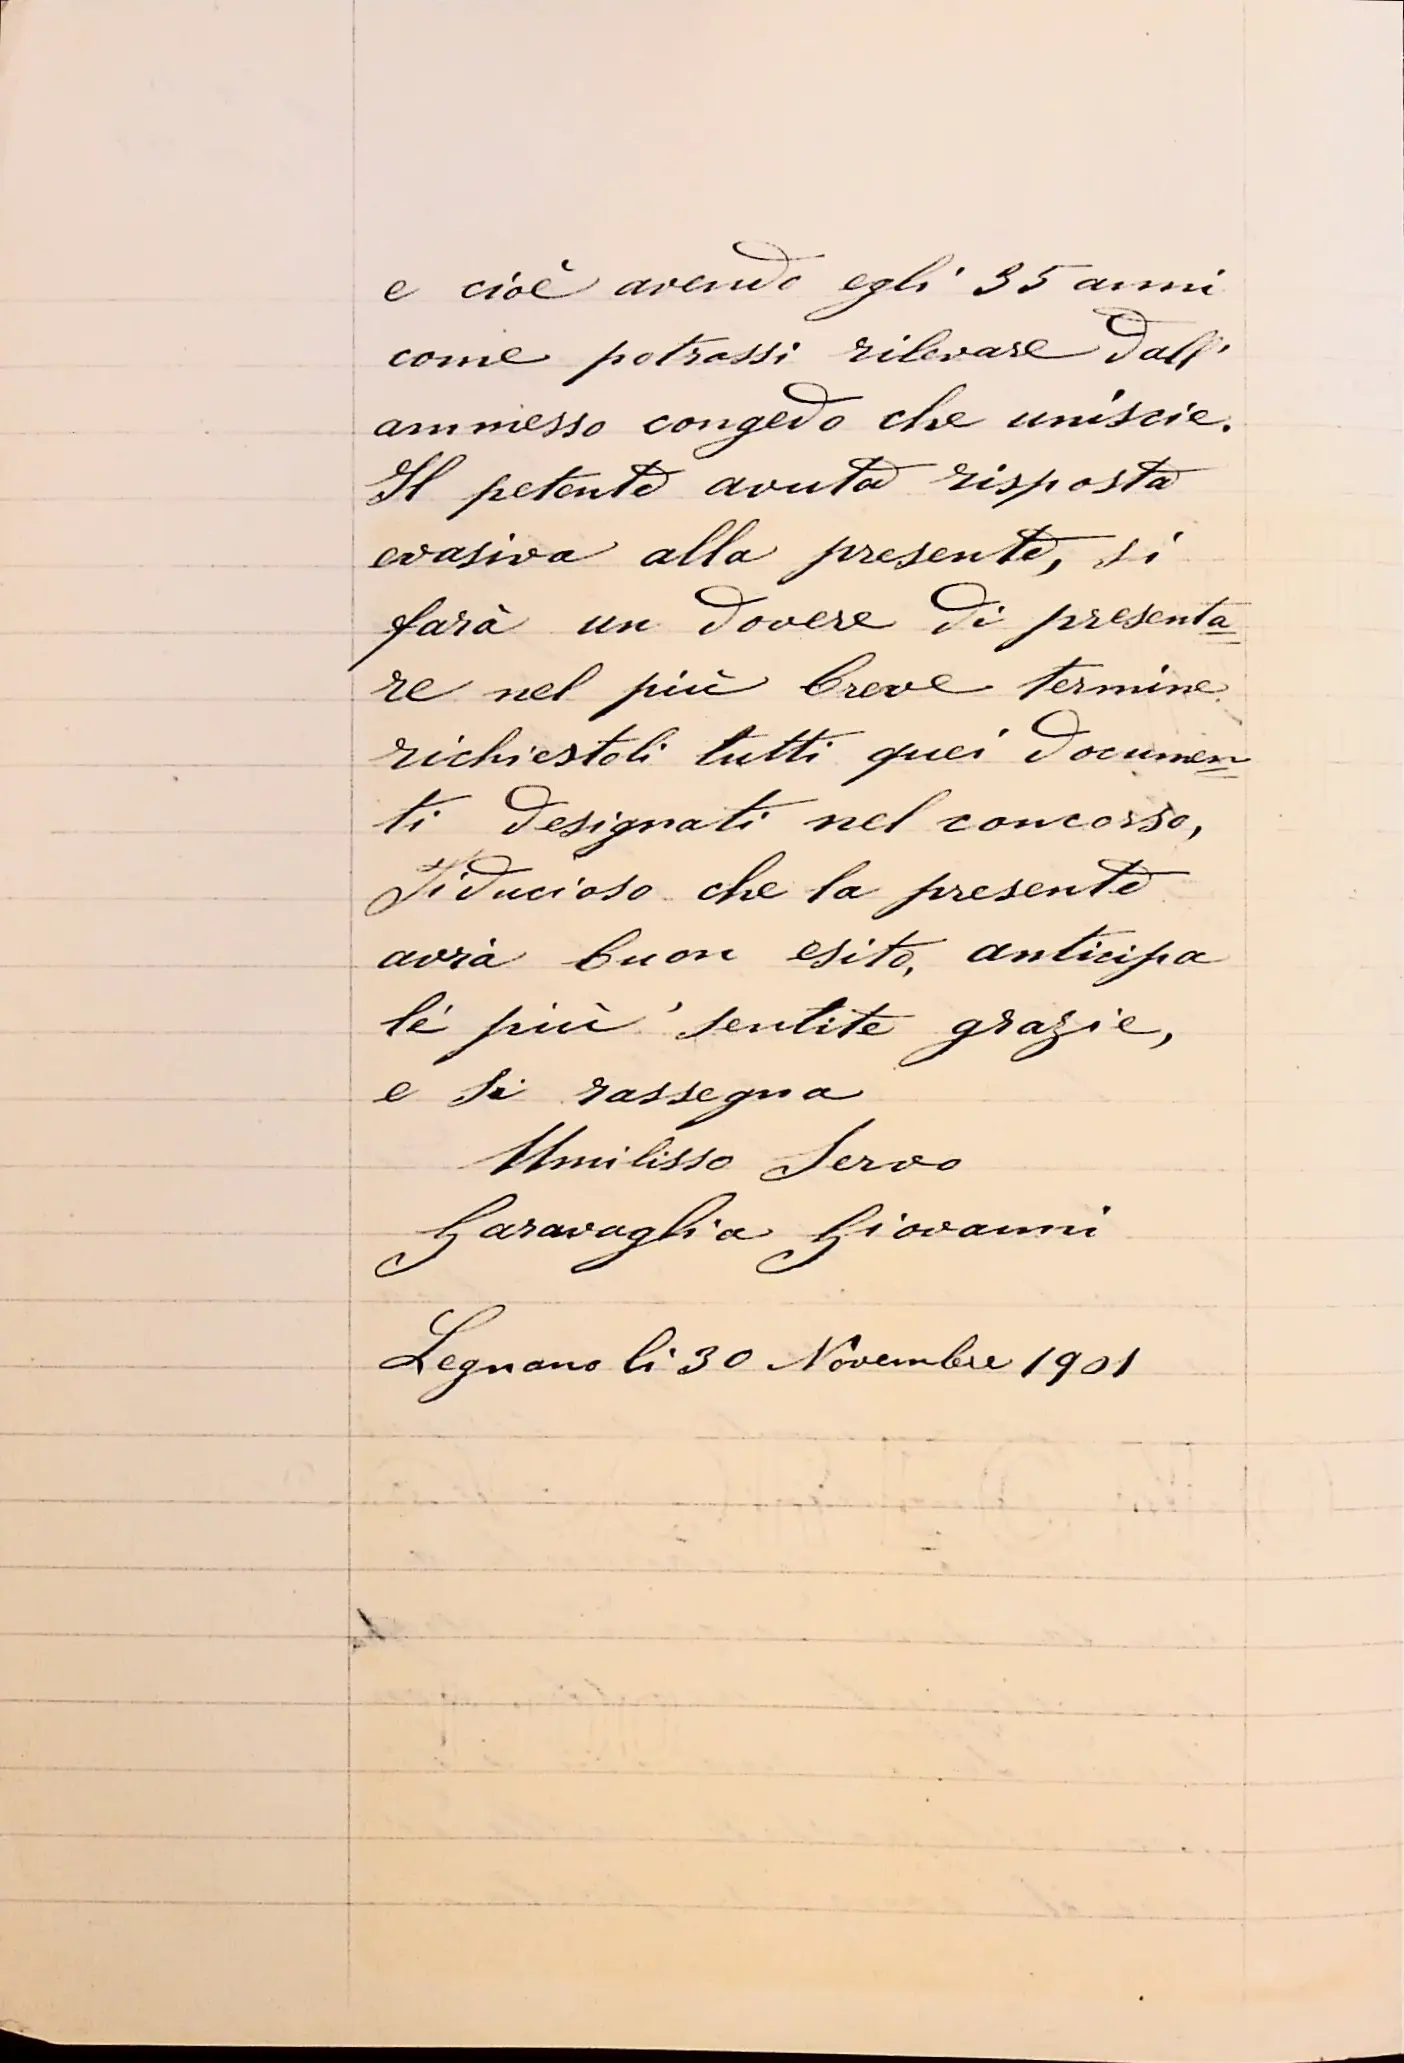 e cioè avendo egli 35 anni
come potrassi rilevare dall'
ammesso congedo che uniscie.
Il petente avuta risposta
evasiva alla presente, si
farà un dovere di presenta=
re nel più breve termine
richiestoli tutti quei documen=
ti designati nel concorso,
Fiducioso che la presente
avrà buon esito, anticipa
le più sentite grazie,
e si rassegna
Umilisso Servo
Garavaglia Giovanni
Legnano li 30 Novembre 1901